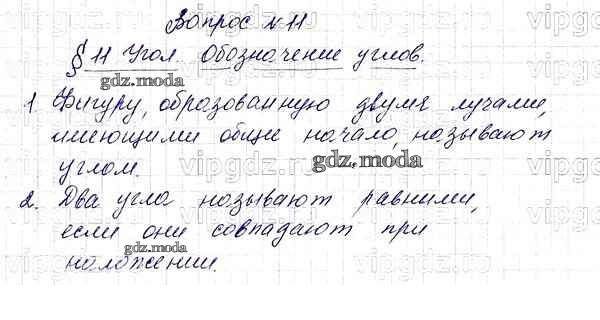 Вопрос №11
§ 11 Угол. Обозначение углов.
1 Фигуру, образованную двумя лучами,
имеющими общие начало, называют
углом.
2. Два угла называют равными,
если они совпадают при
наложении.
gdz.moda
gdz.moda
gdz.moda